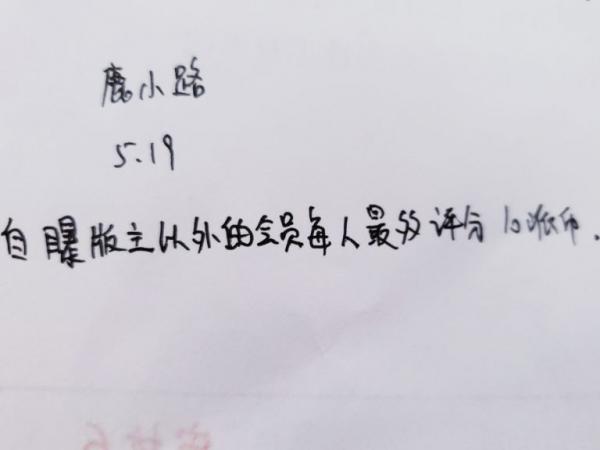 鹿小路
5.19
自曝版主以外的会员每人最多评分10派币.